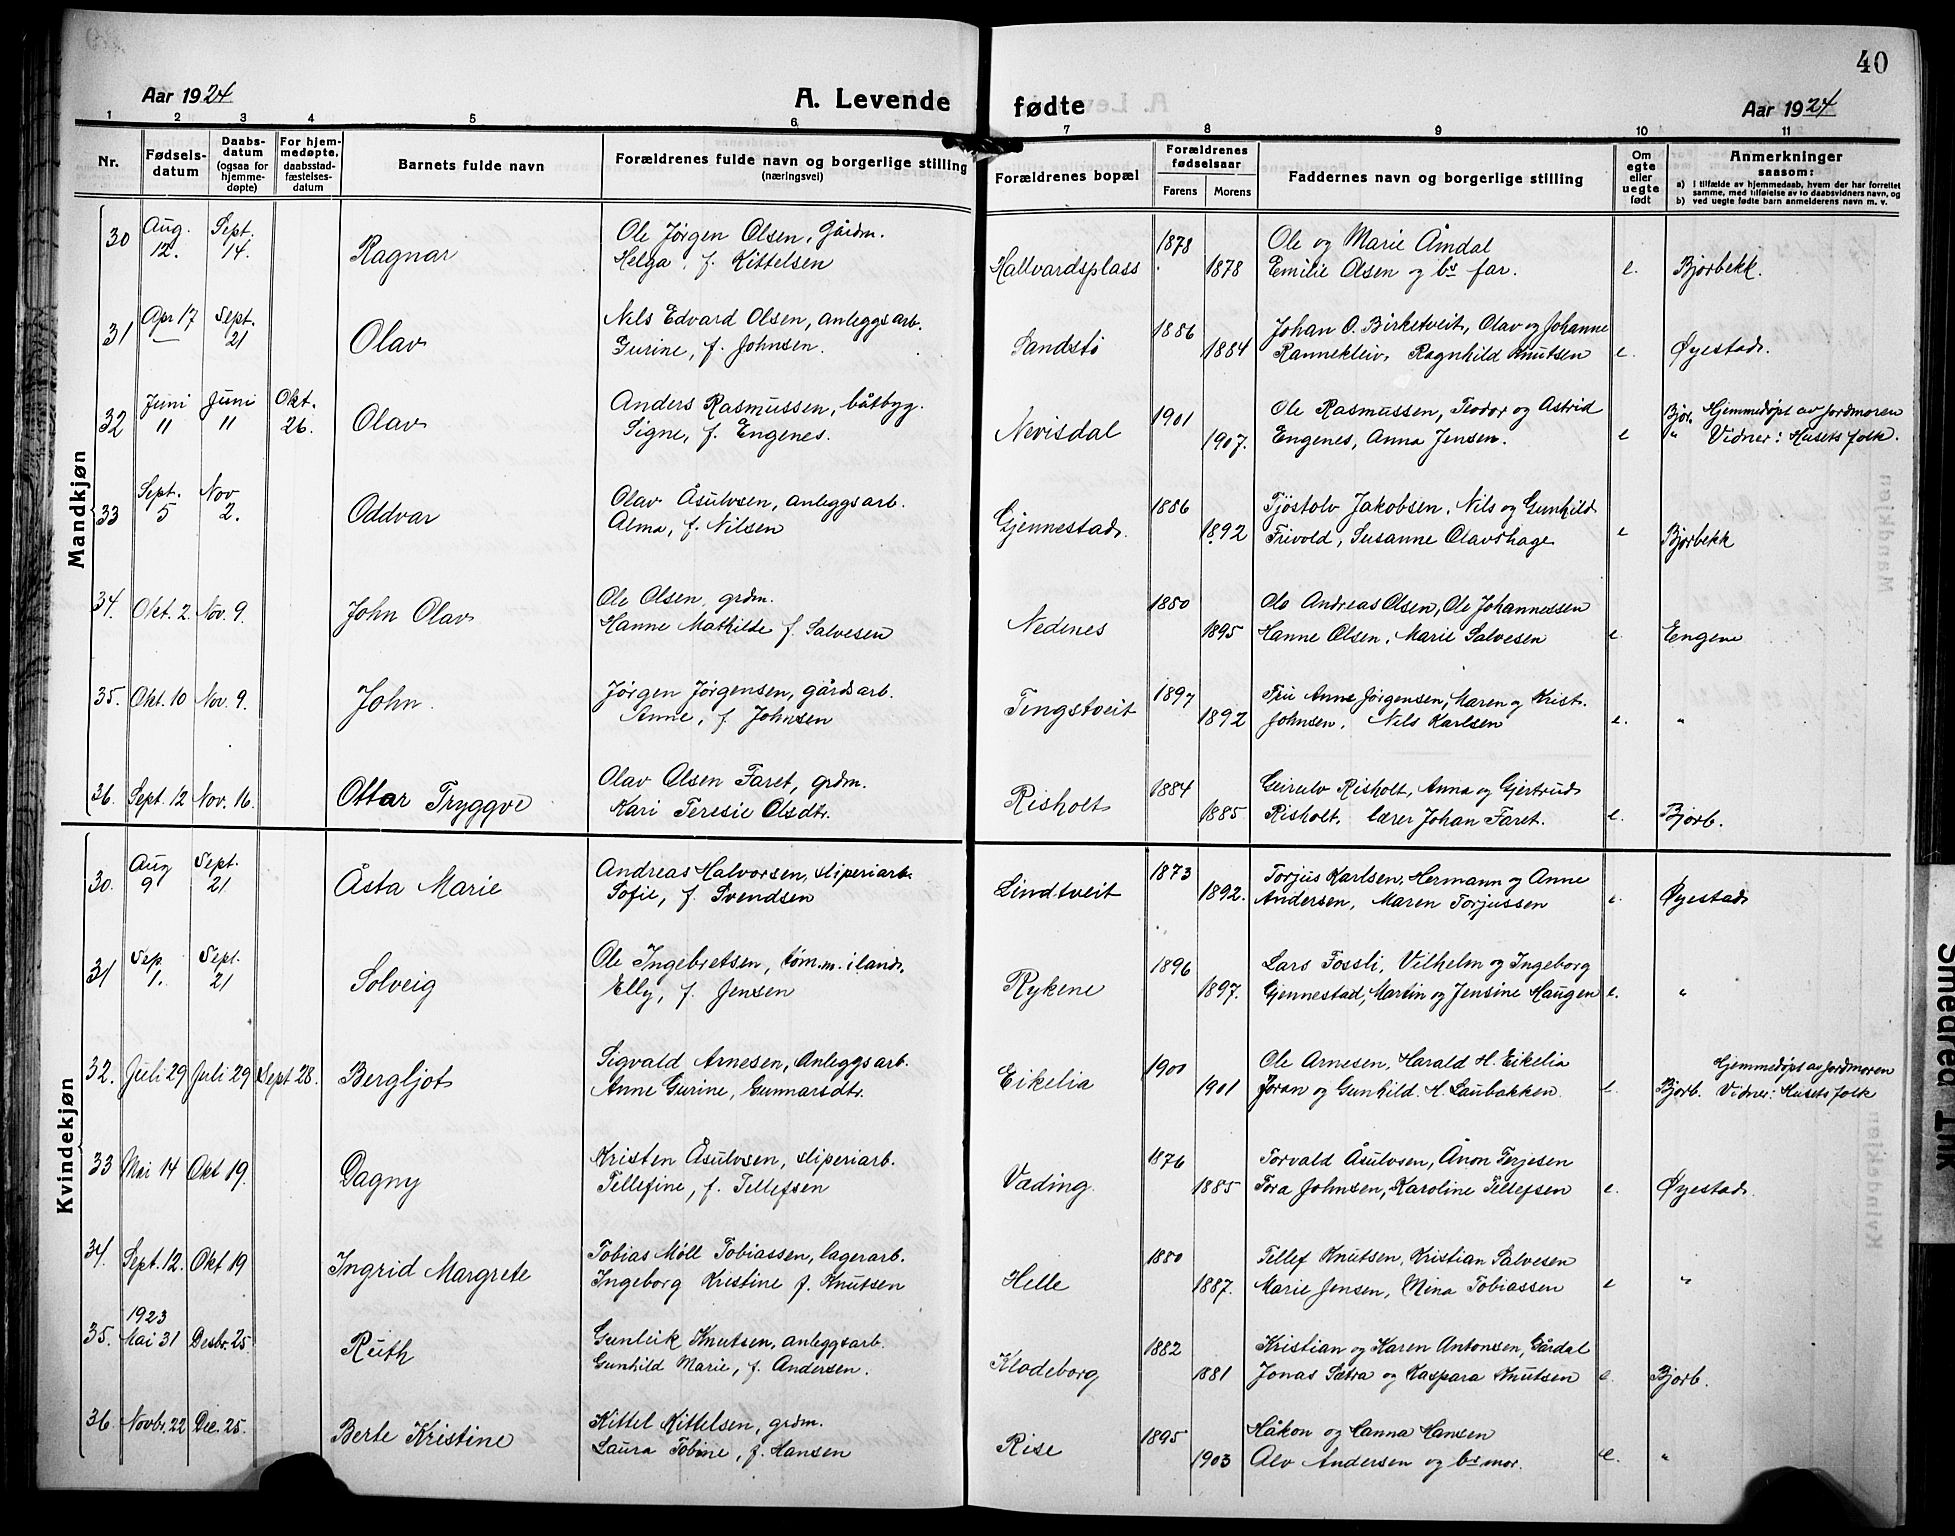 40
Aar 1924
A. Levende fødte
Aar 1924
1 2 3 4 5 6 7 8 9 10 11
Nr. | Fødsels-datum | Daabs-datum (ogsaa for hjemme-døpte) | For hjem-medøpte, daabsstad-fæstelses-datum | Barnets fulde navn | Forældrenes fulde navn og borgerlige stilling (næringsvei) | Forældrenes bopæl | Forældrenes fødselsaar Farens Morens | Faddernes navn og borgerlige stilling | Om egte eller uegte født | Anmerkninger saasom: a) I tilfælde av hjemmedaab, hvem der har forrettet samme, med tilføielse av to daabsvidners navn, og b) ved uegte fødte barn anmelderens navn m. v.
Mandkjøn
30 Aug. 12. Sept. 14. Ragnar Ole Jørgen Olsen, Gårdm. 1878 Ole og Marie Åmdal
Helga, f. Kittelsen Hallvardsplass 1878 Emilie Olsen og bs far. e. Bjorbekk.
31 Apr 17 Sept. 21 Olav Nils Edvard Olsen, anleggsarb. 1886 Johan O. Birketveit, Olav og Johanne
Gurine, f. Johnsen. Sandstø 1884 Rannekleiv, Ragnhild Knutsen e. Øyestad.
32 Juni 11 Juni 11 Okt. 26. Olav Anders Rasmussen, båtbyg. 1901 Ole Rasmussen, Teodor og Astrid Bjor. Hjemmedøpt av jordmoren
Signe, f. Engenes. Nevisdal 1907. Engenes, Anna Jensen. e " Vidner: Husets folk.
33 Sept. 5 Nov 2. Oddvar Olav Åsulvsen, anleggsarb. 1886 Tjøstolv Jakobsen, Nils og Gunhild
Alma, f. Nilsen Gjennestad. 1892 Frivold, Susanne Olavshage e Bjorbekk
34. Okt. 2. Nov. 9. John Olav Ole Olsen, grdm. 1880 Ole Andreas Olsen, Ole Johannessen
Hanne Mathilde f. Salvesen Nedenes 1895 Hanne Olsen, Marie Salvesen e. Engene
35. Okt. 10 Nov. 9. John. Jørgen Jørgensen, gårdsarb. 1897 Fru Anne Jørgensen, Maren og Krist.
Anne, f. Johnsen Tingstveit 1892 Johnsen, Nils Karlsen e. "
36. Sept. 12 Nov. 16. Ottar Tryggve Olav Olsen Faret, grdm. 1884 Geirulv Risholt, Anna og Gjertrud
Kari Teresie Olsdtr. Risholt 1885 Risholt, lærer Johan Faret. e. Bjorb.
Kvindekjøn
30. Aug 9 Sept. 21 Åsta Marie Andreas Halvorsen, sliperiarb. 1873 Torjus Karlsen, Hermann og Anne
Sofie, f. Svendsen Lindtveit 1892. Andersen, Maren Torjussen e. Øyestad
31 Sep. 1. Sept. 21 Solveig Ole Ingebretsen, tøm.m. i land. 1896 Lars Fossli, Vilhelm og Ingeborg
Elly, f. Jensen Rykene 1897. Gjennestad, Martin og Jensine Haugen e. "
32. Juli 29 Juli 29 Sept 28. Bergljot Sigvald Arnesen, Anleggsarb. 1900 Ole Arnesen, Harald H. Eikelia Hjemmedøpt av jordmoren
Anne Gurine, Gunnarsdtr. Eikelia 1901 Jøran og Gunhild H. Laubakken. e. Bjorb. Vidner: Husets folk
33 Mai 14 Okt 19. Dagny Kristen Åsulvsen, sliperiarb. 1876 Torvald Åsulvsen, Ånon Terjesen
Tellefine, f. Tellefsen Væding. 1885 Tora Johnsen, Karoline Tellefsen e. Øyestad.
34. Sept. 12. Okt 19 Ingrid Margrete Tobias Møll Tobiassen, lagerarb. 1880 Tellef Knutsen, Kristian Salvesen
Ingeborg Kristine f. Knutsen Helle 1887. Marie Jensen, Mina Tobiassen e "
35. 1923 Mai 31 Desbr. 25. Ruth Gunleik Knutsen, anleggsarb. 1882 Kristian og Karen Antonsen, Gårdal
Gunhild Marie, f. Andersen. Klodeborg 1881 Jonas Sætra og Kaspara Knutsen e. Bjorb.
36. Novbr. 22 Dec. 25. Berte Kristine Kittel Kittelsen, grdm. 1895 Håkon og Hanna Hansen
Laura Tobine, f. Hansen Rise 1903 Alv Andersen og bs mor. e. "
Smeared Ink